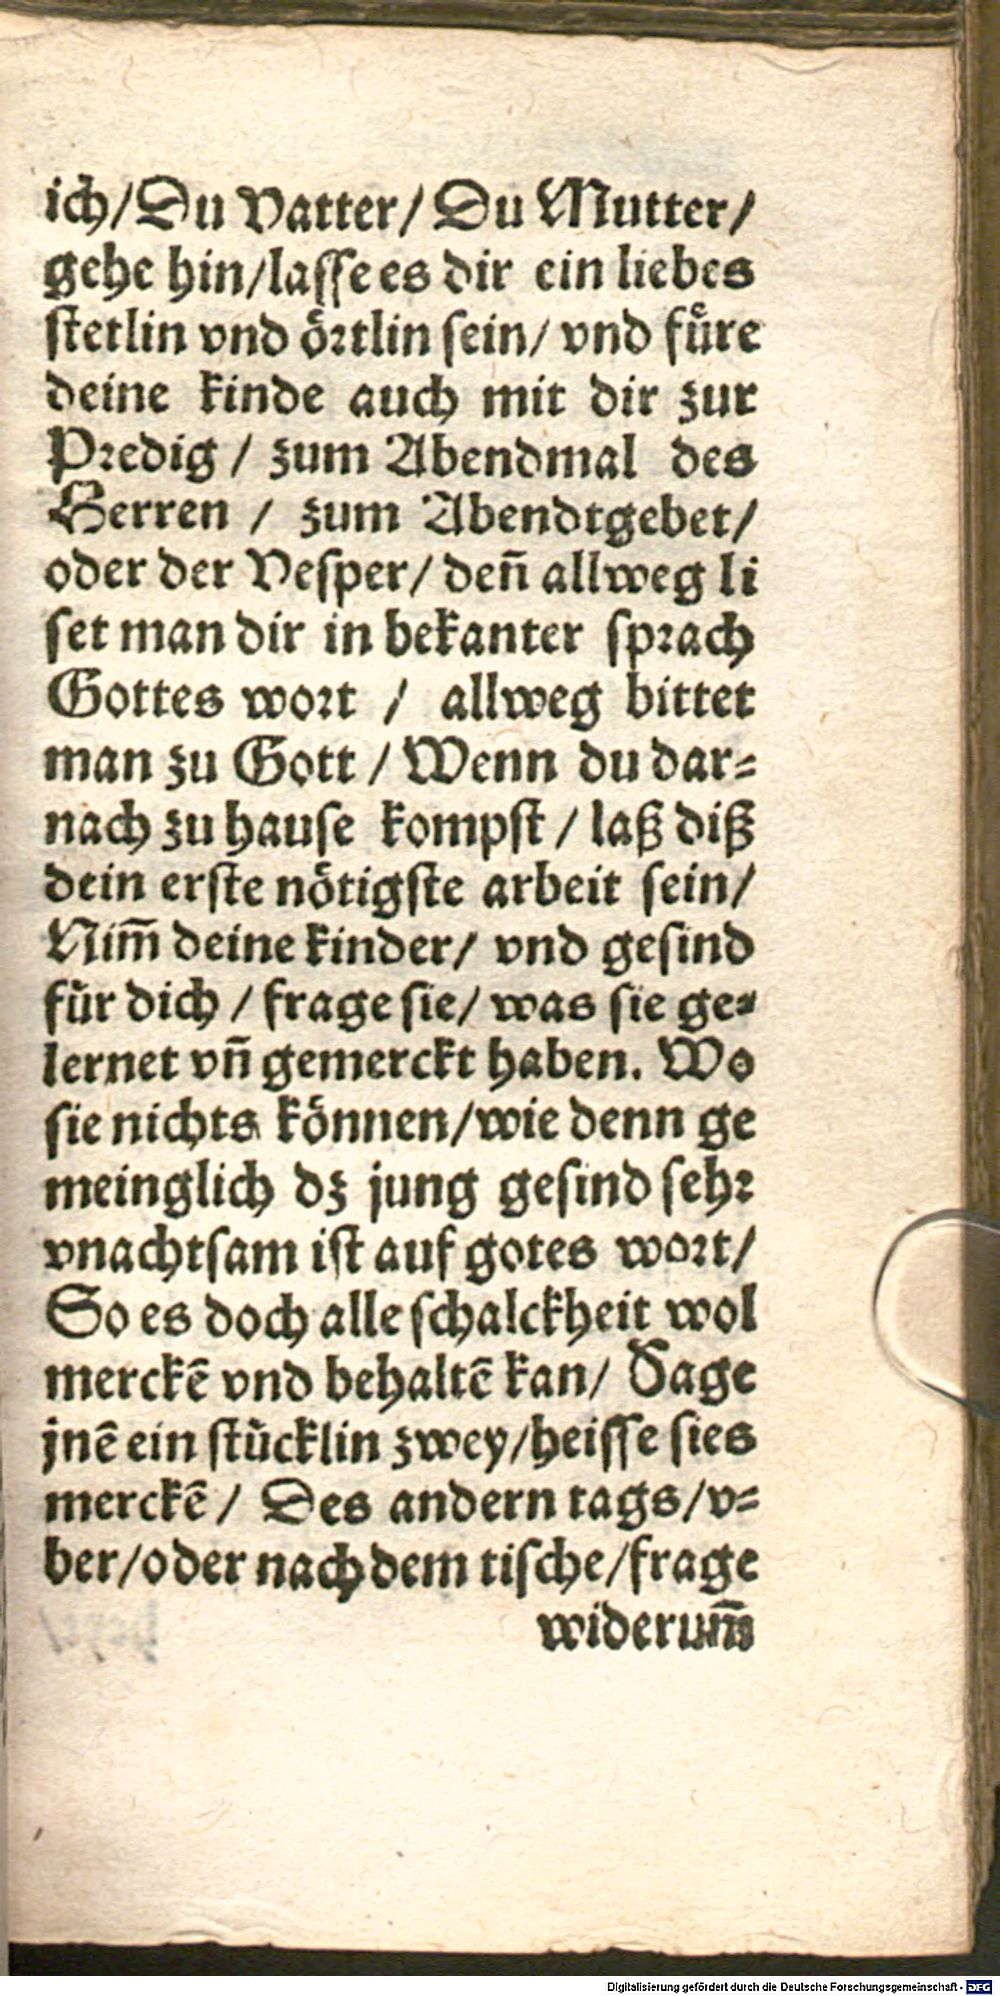 ich/Du Vatter/ Du Mutter/
gehe hin/lasse es dir ein liebes
stetlin vnd oͤrtlin sein/ vnd fuͤre
deine kinde auch mit dir zur
Predig / zum Abendmal des
Herren / zum Abendtgebet/
oder der Vesper/ deñ allweg li
set man dir in bekanter sprach
Gottes wort / allweg bittet
man zu Gott / Wenn du dar⸗
nach zu hause kompst / laß diß
dein erste noͤtigste arbeit sein/
Nim̃ deine kinder/ vnd gesind
für dich / frage sie/ was sie ge⸗
lernet vñ gemerckt haben. Wo
sie nichts koͤnnen/wie denn ge
meinglich dz jung gesind sehr
vnachtsam ist auf gotes wort/
So es doch alle schalckheit wol
merckẽ vnd behaltẽ kan/ Sage
jnẽ ein stücklin zwey/heisse sies
merckẽ/ Des andern tags/v⸗
ber/oder nach dem tische/frage
widerum̃
Digitalisierung gefördert durch die Deutsche Forschungsgemeinschaft - DFG